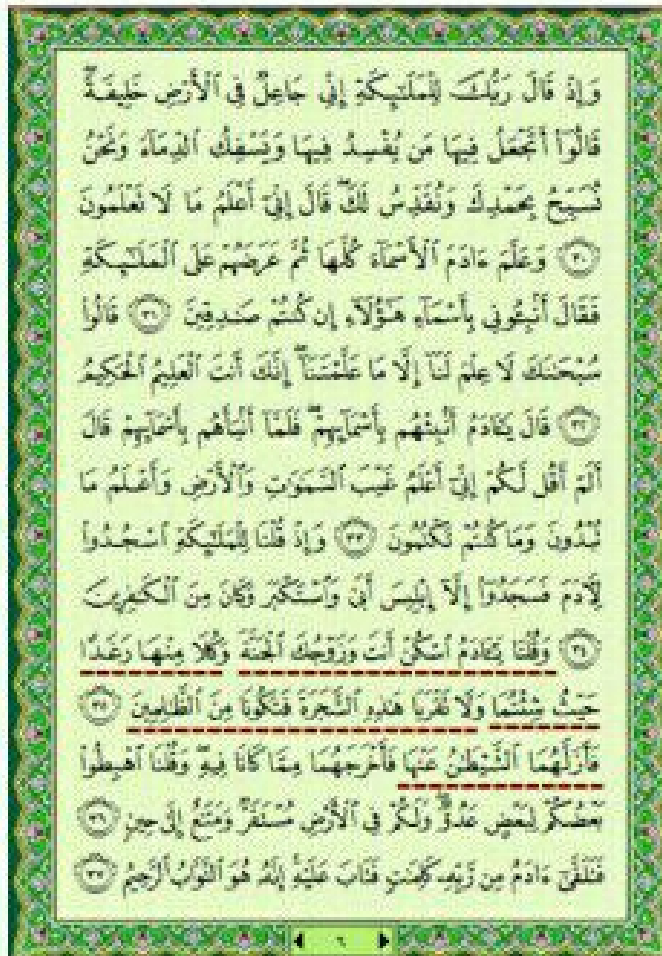 وَإِذْ قَالَ رَبُّكَ لِلْمَلَٰٓئِكَةِ إِنِّى جَاعِلٌ فِى ٱلْأَرْضِ خَلِيفَةً ۖ
قَالُوٓا۟ أَتَجْعَلُ فِيهَا مَن يُفْسِدُ فِيهَا وَيَسْفِكُ ٱلدِّمَآءَ وَنَحْنُ
نُسَبِّحُ بِحَمْدِكَ وَنُقَدِّسُ لَكَ ۖ قَالَ إِنِّىٓ أَعْلَمُ مَا لَا تَعْلَمُونَ
٣٠ وَعَلَّمَ ءَادَمَ ٱلْأَسْمَآءَ كُلَّهَا ثُمَّ عَرَضَهُمْ عَلَى ٱلْمَلَٰٓئِكَةِ
فَقَالَ أَنۢبِـُٔونِى بِأَسْمَآءِ هَٰٓؤُلَآءِ إِن كُنتُمْ صَٰدِقِينَ ٣١ قَالُوا۟
سُبْحَٰنَكَ لَا عِلْمَ لَنَآ إِلَّا مَا عَلَّمْتَنَآ ۖ إِنَّكَ أَنتَ ٱلْعَلِيمُ ٱلْحَكِيمُ
٣٢ قَالَ يَٰٓـَٔادَمُ أَنۢبِئْهُم بِأَسْمَآئِهِمْ ۖ فَلَمَّآ أَنۢبَأَهُم بِأَسْمَآئِهِمْ قَالَ
أَلَمْ أَقُل لَّكُمْ إِنِّىٓ أَعْلَمُ غَيْبَ ٱلسَّمَٰوَٰتِ وَٱلْأَرْضِ وَأَعْلَمُ مَا
تُبْدُونَ وَمَا كُنتُمْ تَكْتُمُونَ ٣٣ وَإِذْ قُلْنَا لِلْمَلَٰٓئِكَةِ ٱسْجُدُوا۟
لِـَٔادَمَ فَسَجَدُوٓا۟ إِلَّآ إِبْلِيسَ أَبَىٰ وَٱسْتَكْبَرَ وَكَانَ مِنَ ٱلْكَٰفِرِينَ
٣٤ وَقُلْنَا يَٰٓـَٔادَمُ ٱسْكُنْ أَنتَ وَزَوْجُكَ ٱلْجَنَّةَ وَكُلَا مِنْهَا رَغَدًا
حَيْثُ شِئْتُمَا وَلَا تَقْرَبَا هَٰذِهِ ٱلشَّجَرَةَ فَتَكُونَا مِنَ ٱلظَّٰلِمِينَ ٣٥
فَأَزَلَّهُمَا ٱلشَّيْطَٰنُ عَنْهَا فَأَخْرَجَهُمَا مِمَّا كَانَا فِيهِ ۖ وَقُلْنَا ٱهْبِطُوا۟
بَعْضُكُمْ لِبَعْضٍ عَدُوٌّ ۖ وَلَكُمْ فِى ٱلْأَرْضِ مُسْتَقَرٌّ وَمَتَٰعٌ إِلَىٰ حِينٍ ٣٦
فَتَلَقَّىٰٓ ءَادَمُ مِن رَّبِّهِۦ كَلِمَٰتٍ فَتَابَ عَلَيْهِ ۚ إِنَّهُۥ هُوَ ٱلتَّوَّابُ ٱلرَّحِيمُ ٣٧
٦